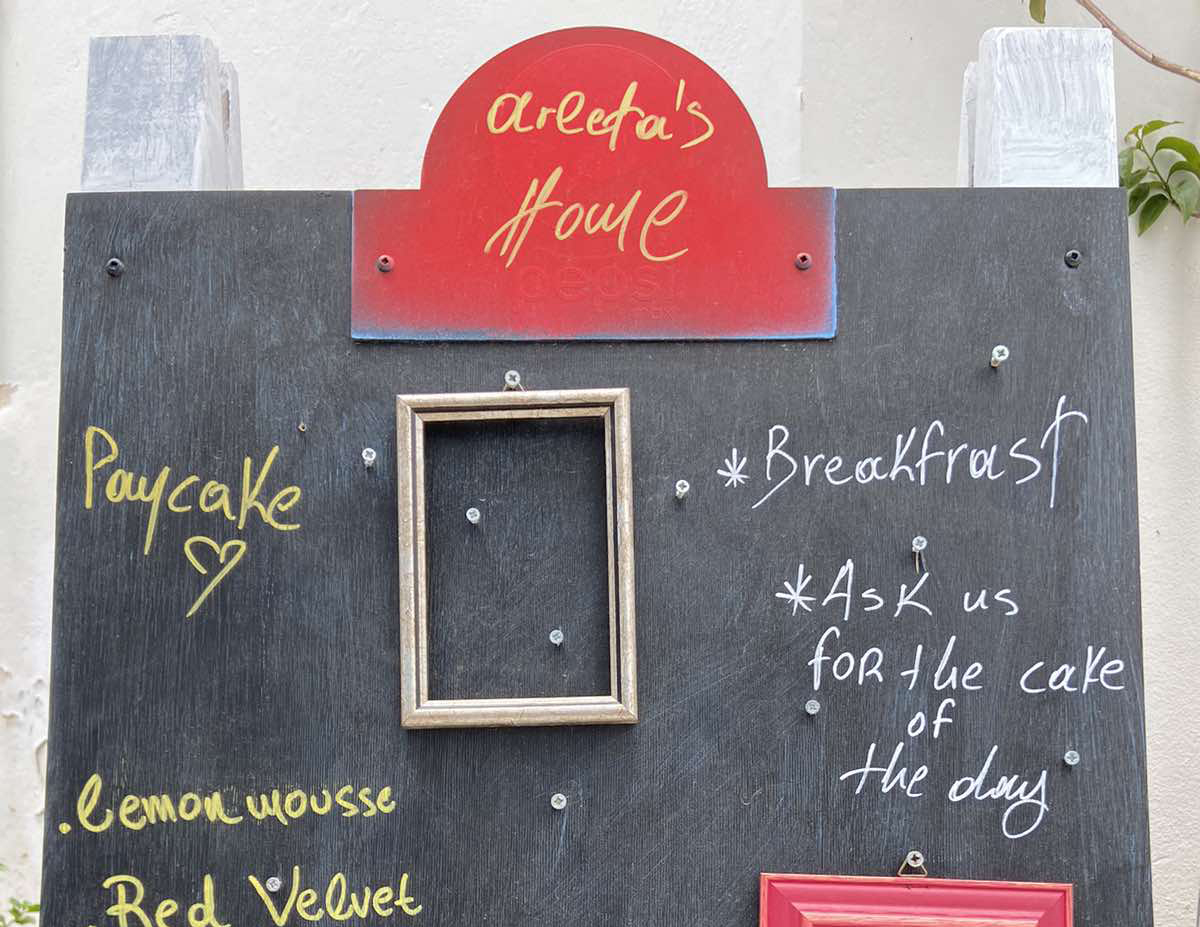 areeta's
Home
Paycake
. lemon mousse
. Red Velvet
* Breakfrast
* Ask us
for the cake
of
the day